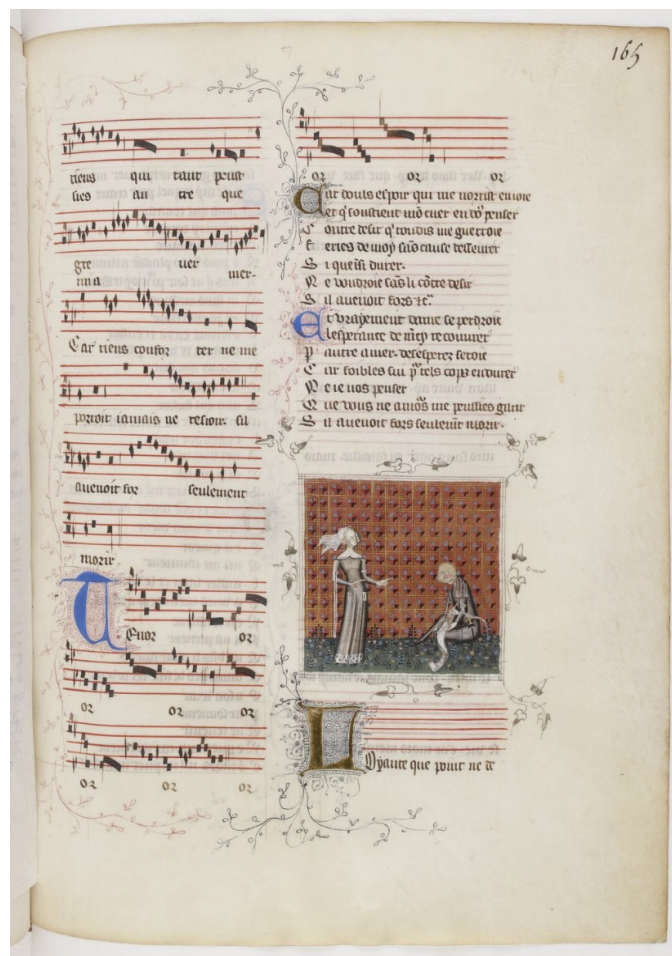 165
riens qui tant peust
sies an tre que
gre uer
ma mer-
Car riens confor ter ne me
porroit iamais ne resioir. sil
auenoit fors seulement
morir
Tenor oz
oz oz oz
oz oz oz
oz oz oz
Car douls espoir qui me norrist en ioie
et q̃ soustient mõ cuer en dõ penser
Contre desir q̃ toudis me guerroie
S i que durer.
N e voudroie sãs li cõtre desir
S il auenoit fors ec̃.
Et vraiement dame ie perdroie
lesperance de recouurer
P autre amer. desesperer seroie
C ar foibles sui tels cops endurer
N e ie nos penser
Q ue vous ne amõs me peussies garir
S il auenoit fors seulemt̃ morir.
Loyaute que point ne de